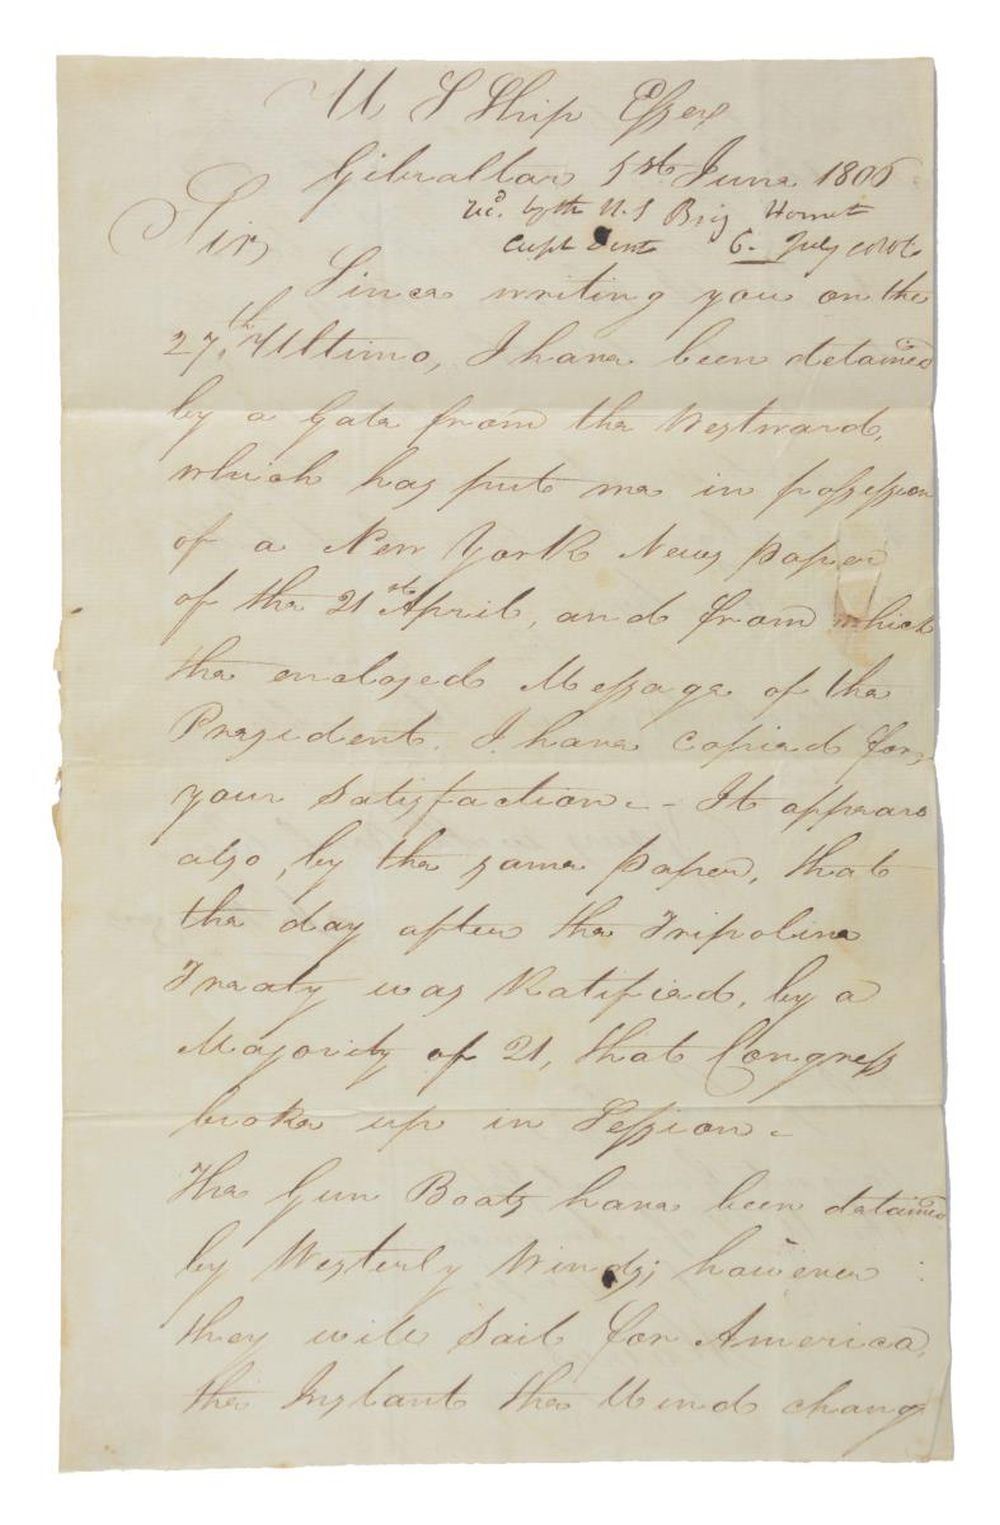 U S Ship Essex
Gibraltar 5st June 1806
Recd. by the U.S Brig Hornet
Capt Dent 6. July
Sir,
Since writing you on the
27th, Ultimo, I have been detained
by a Gale from the Westward,
which has put me in possession
of a New York News paper
of the 21st April, and from which
the enclosed Message of the
President. I have Copied for,
your Satisfaction. - It appears
also, by the same paper, that
the day after the Tripoline
Treaty was Ratified, by a
Majority of 21, that Congress
broke up in Session -
The Gun Boats have been detained
by Westerly Winds; however
they will Sail for America,
the Instant the Wind chang